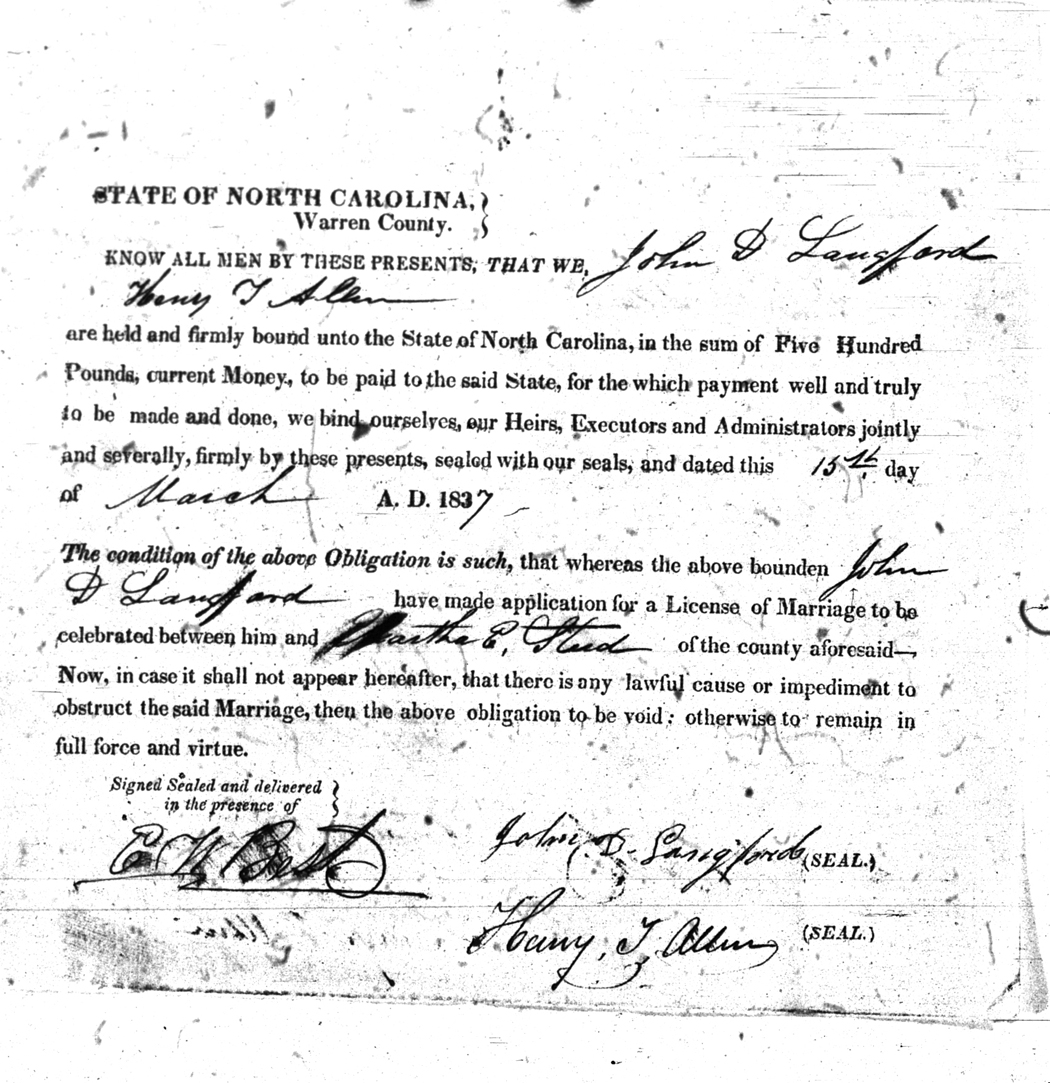 STATE OF NORTH CAROLINA,
Warren County.
KNOW ALL MEN BY THESE PRESENTS, THAT WE, John D Langford
Henry T Allen
are held and firmly bound unto the State of North Carolina, in the sum of Five Hundred
Pounds, current Money, to be paid to the said State, for the which payment well and truly
to be made and done, we bind ourselves, our Heirs, Executors and Administrators jointly
and severally, firmly by these presents, sealed with our seals, and dated this 15th day
of March A. D. 1837
The condition of the above Obligation is such, that whereas the above bounden John
D Langford have made application for a License of Marriage to be
celebrated between him and Martha E, Steed of the county aforesaid—
Now, in case it shall not appear hereafter, that there is any lawful cause or impediment to
obstruct the said Marriage, then the above obligation to be void; otherwise to remain in
full force and virtue.
Signed Sealed and delivered
in the presence of
E W Best
John D. Langford (SEAL.)
Henry, T, Allen (SEAL.)